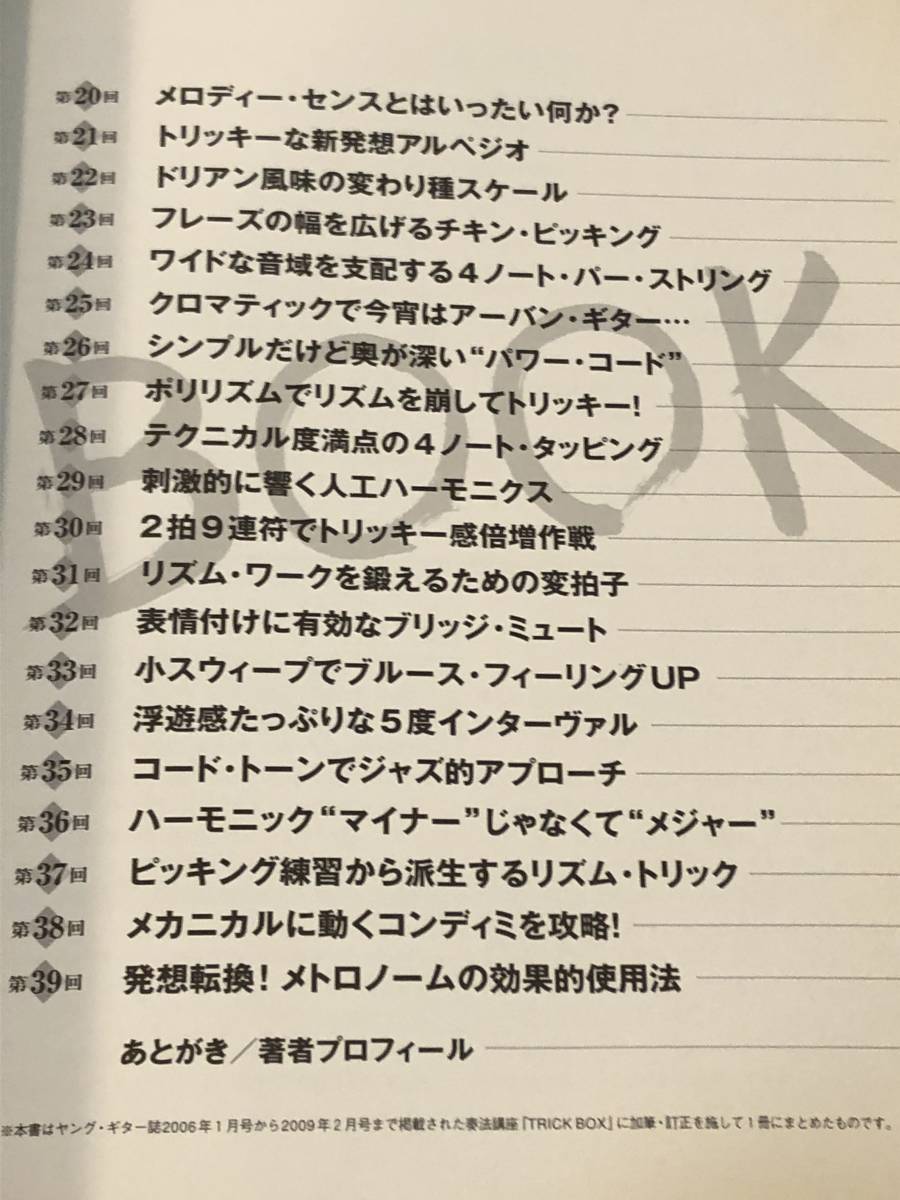 第20回 メロディー・センスとはいったい何か？
第21回 トリッキーな新発想アルペジオ
第22回 ドリアン風味の変わり種スケール
第23回 フレーズの幅を広げるチキン・ピッキング
第24回 ワイドな音域を支配する４ノート・パー・ストリング
第25回 クロマティックで今宵はアーバン・ギター…
第26回 シンプルだけど奥が深い“パワー・コード”
第27回 ポリリズムでリズムを崩してトリッキー！
第28回 テクニカル度満点の４ノート・タッピング
第29回 刺激的に響く人工ハーモニクス
第30回 ２拍９連符でトリッキー感倍増作戦
第31回 リズム・ワークを鍛えるための変拍子
第32回 表情付けに有効なブリッジ・ミュート
第33回 小スウィープでブルース・フィーリングUP
第34回 浮遊感たっぷりな５度インターヴァル
第35回 コード・トーンでジャズ的アプローチ
第36回 ハーモニック“マイナー”じゃなくて“メジャー”
第37回 ピッキング練習から派生するリズム・トリック
第38回 メカニカルに動くコンディミを攻略！
第39回 発想転換！ メトロノームの効果的使用法
あとがき／著者プロフィール
※本書はヤング・ギター誌2006年１月号から2009年２月号まで掲載された奏法講座「TRICK BOX」に加筆・訂正を施して１冊にまとめたものです。
BOOK